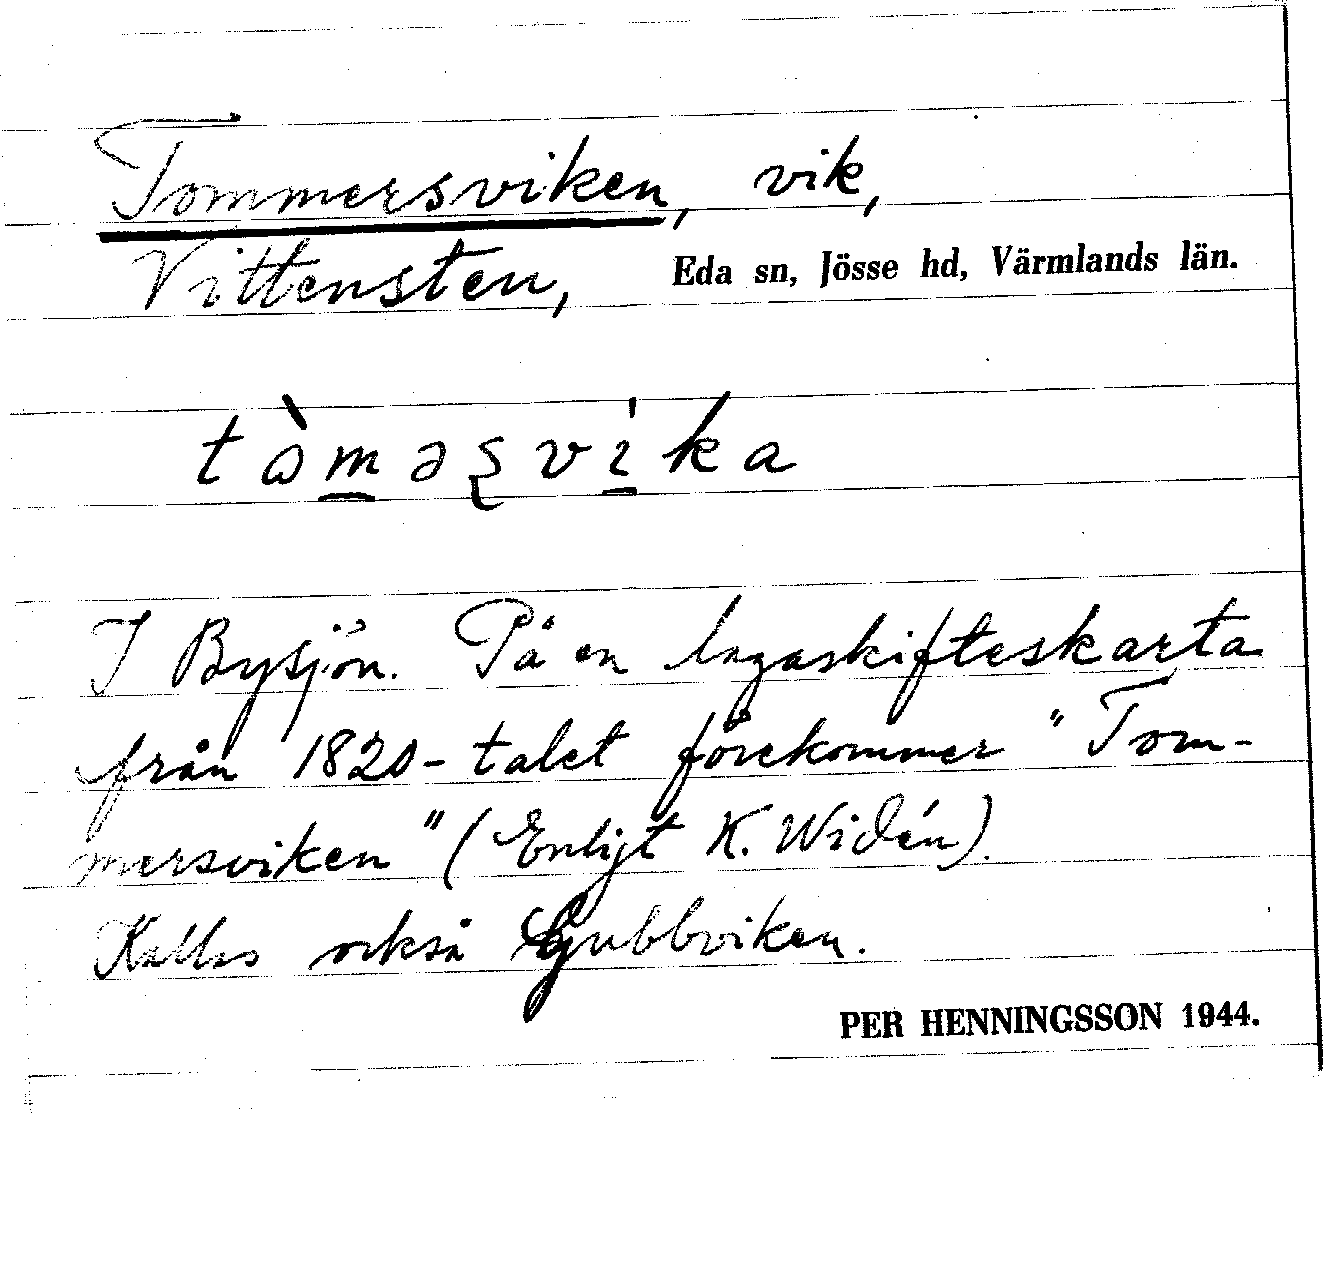 Tommersviken, vik,
Vittensten, Eda sn, Jösse hd, Värmlands län.
tὼməʂvi̍ka
I Bysjön. På en lagaskifteskarta
från 1820-talet förekommer "Tom-
mersviken" (Enligt K. Widén).
Kallas också Gubbviken.
PER HENNINGSSON 1944.